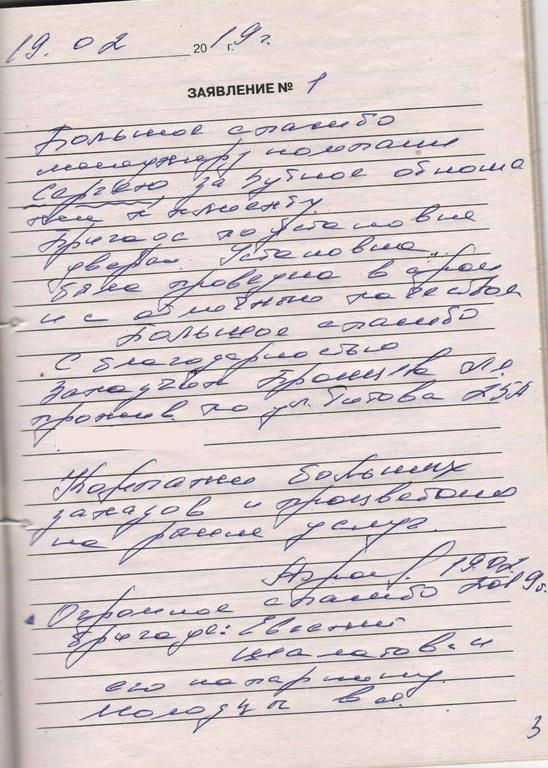 19.02 2019 г.
ЗАЯВЛЕНИЕ № 1
Большое спасибо
менеджеру компании
Сергею за чуткое отноше
ние к клиенту
Бригаде по установке
дверей. Установка
была проведена в срок
и с отличным качеством
Большое спасибо
С благодарностью
заказчик
прожив. по ул. Титова 25А
Компании больших
заказов и процветания
на рынке услуг.
19.02
2019г.
Огромное спасибо
бригаде: Евгений
и
его напарнику.
Молодцы все
3